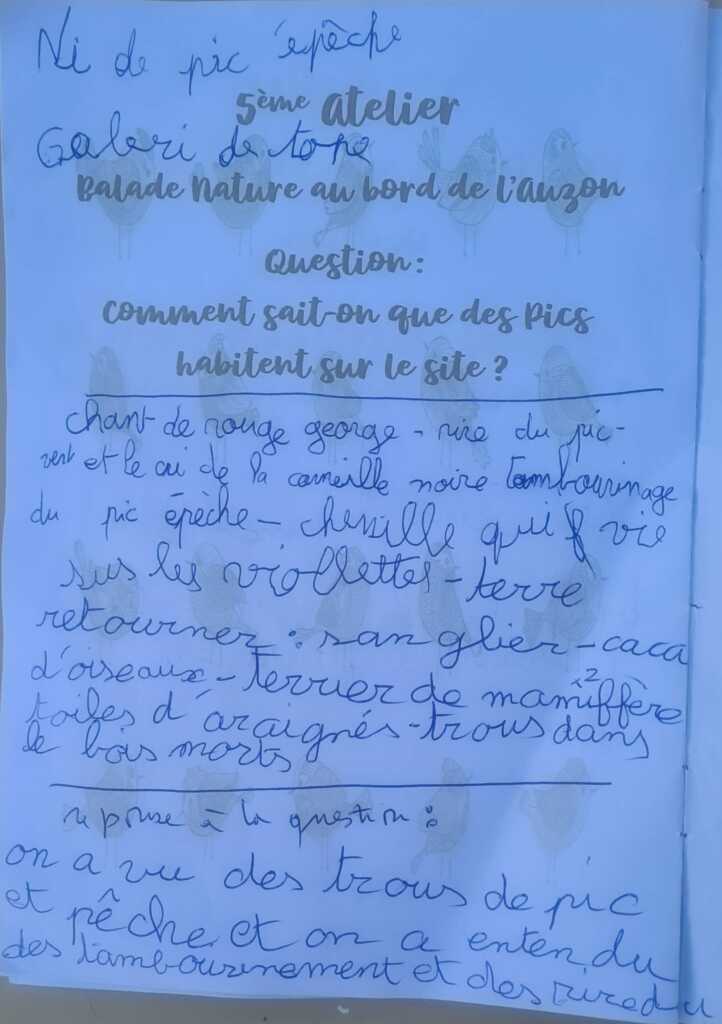 Ni de pic épêche
5ème Atelier
Galeri de tope
Balade Nature au bord de l'Auzon
Question :
Comment sait-on que des Pics
habitent sur le site ?
chant de rouge george - rire du pic-
vert et le cri de la corneille noire tambourinage
du pic épèche - chenille qui vie
sus les viollettes - terre
retourner : san glier - caca
d'oiseaux - terrier de mamiffère
toiles d'araignés - trous dans
le bois morts
reponse à la question :
on a vu des trous de pic
et pêche et on a enten du
des tambourinement et des rire du